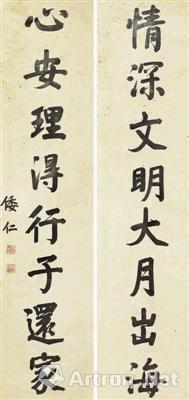 情深文明大月出海
心安理得行子還家
倭仁